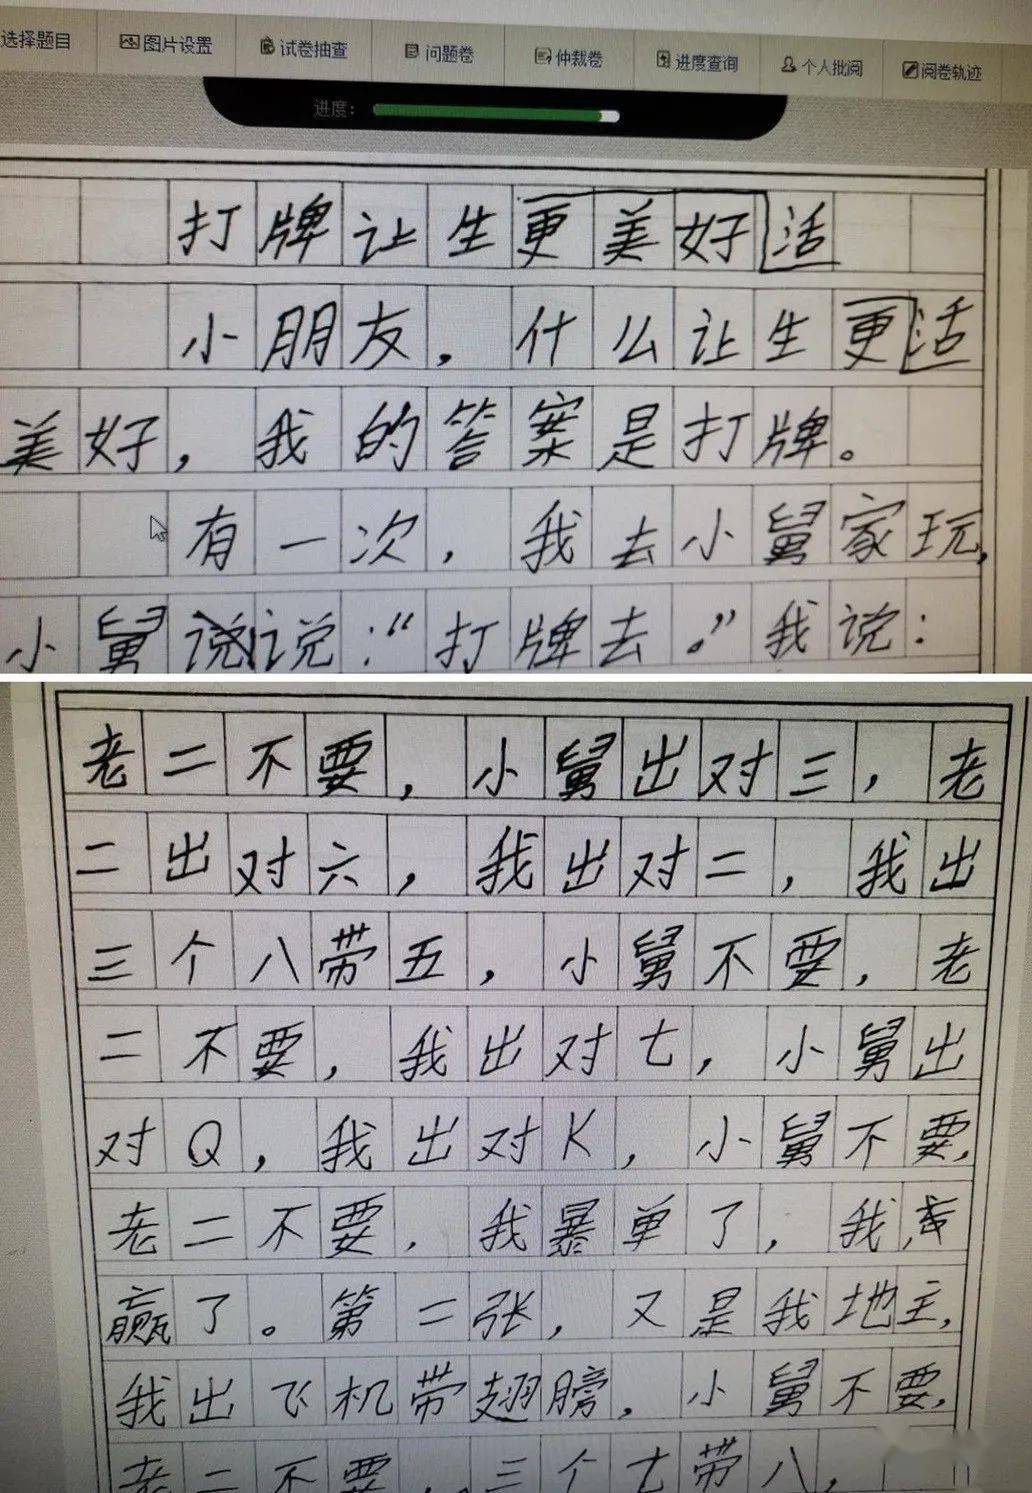 选择题目 图片设置 试卷抽查 问题卷 仲裁卷 进度查询 个人批阅 阅卷轨迹
进度：
打牌让生更美好活
小朋友，什么让生更活
美好，我的答案是打牌。
有一次，我去小舅家玩，
小舅说说：“打牌去。”我说：
老二不要，小舅出对三，老
二出对六，我出对二，我出
三个八带五，小舅不要，老
二不要，我出对七，小舅出
对Q，我出对K，小舅不要，
老二不要，我暴单了，我
赢了。第二张，又是我地主，
我出飞机带翅膀，小舅不要，
老二不要，三个七带八，